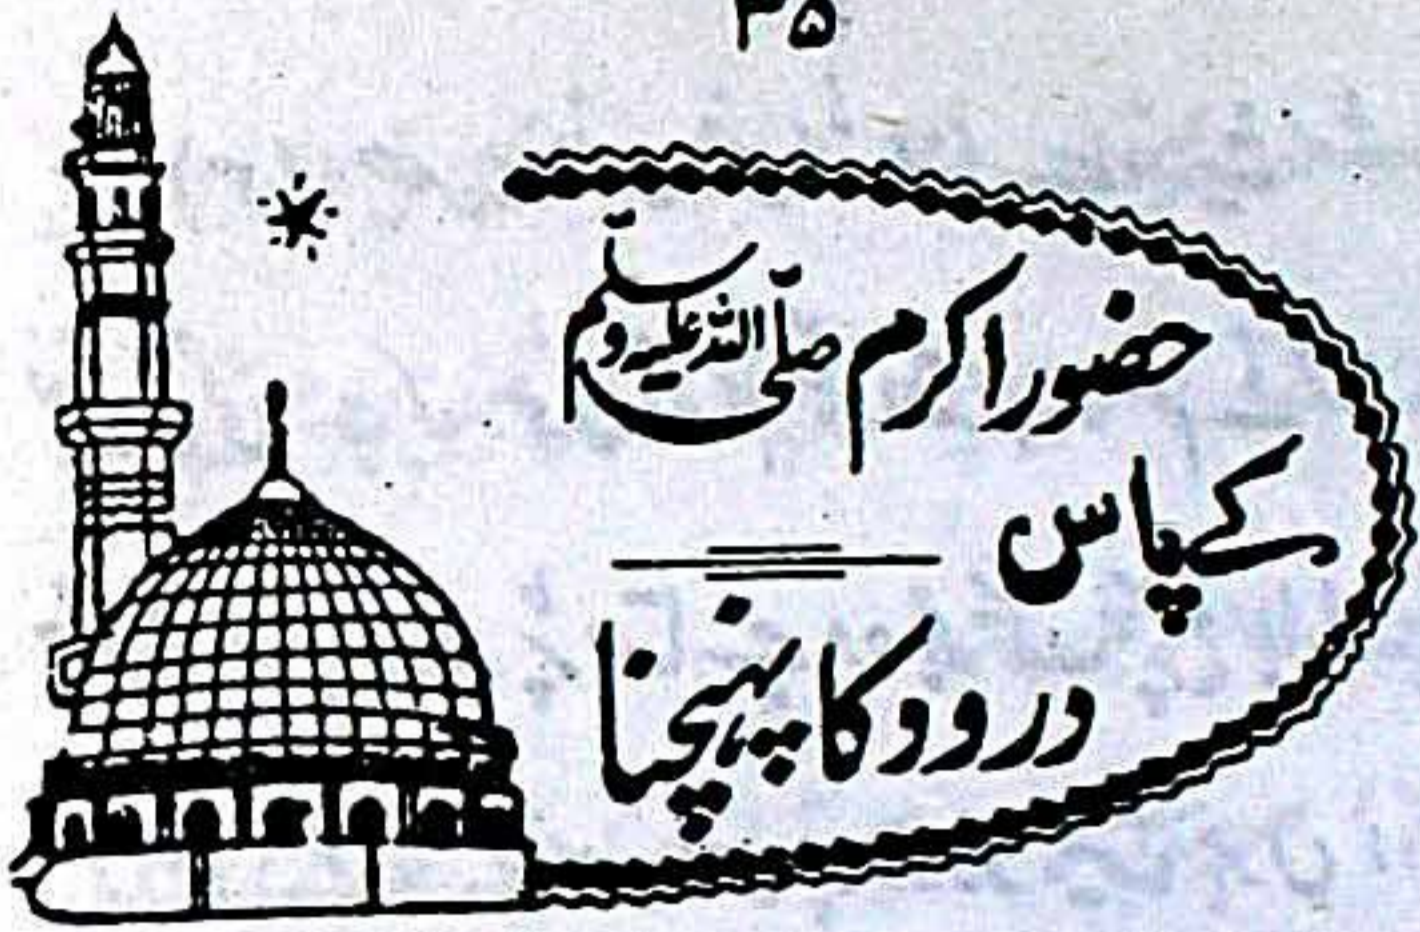 ۳۵
حضور اکرم صلی اللہ علیہ وسلم
کے پاس
درود کا پہنچنا